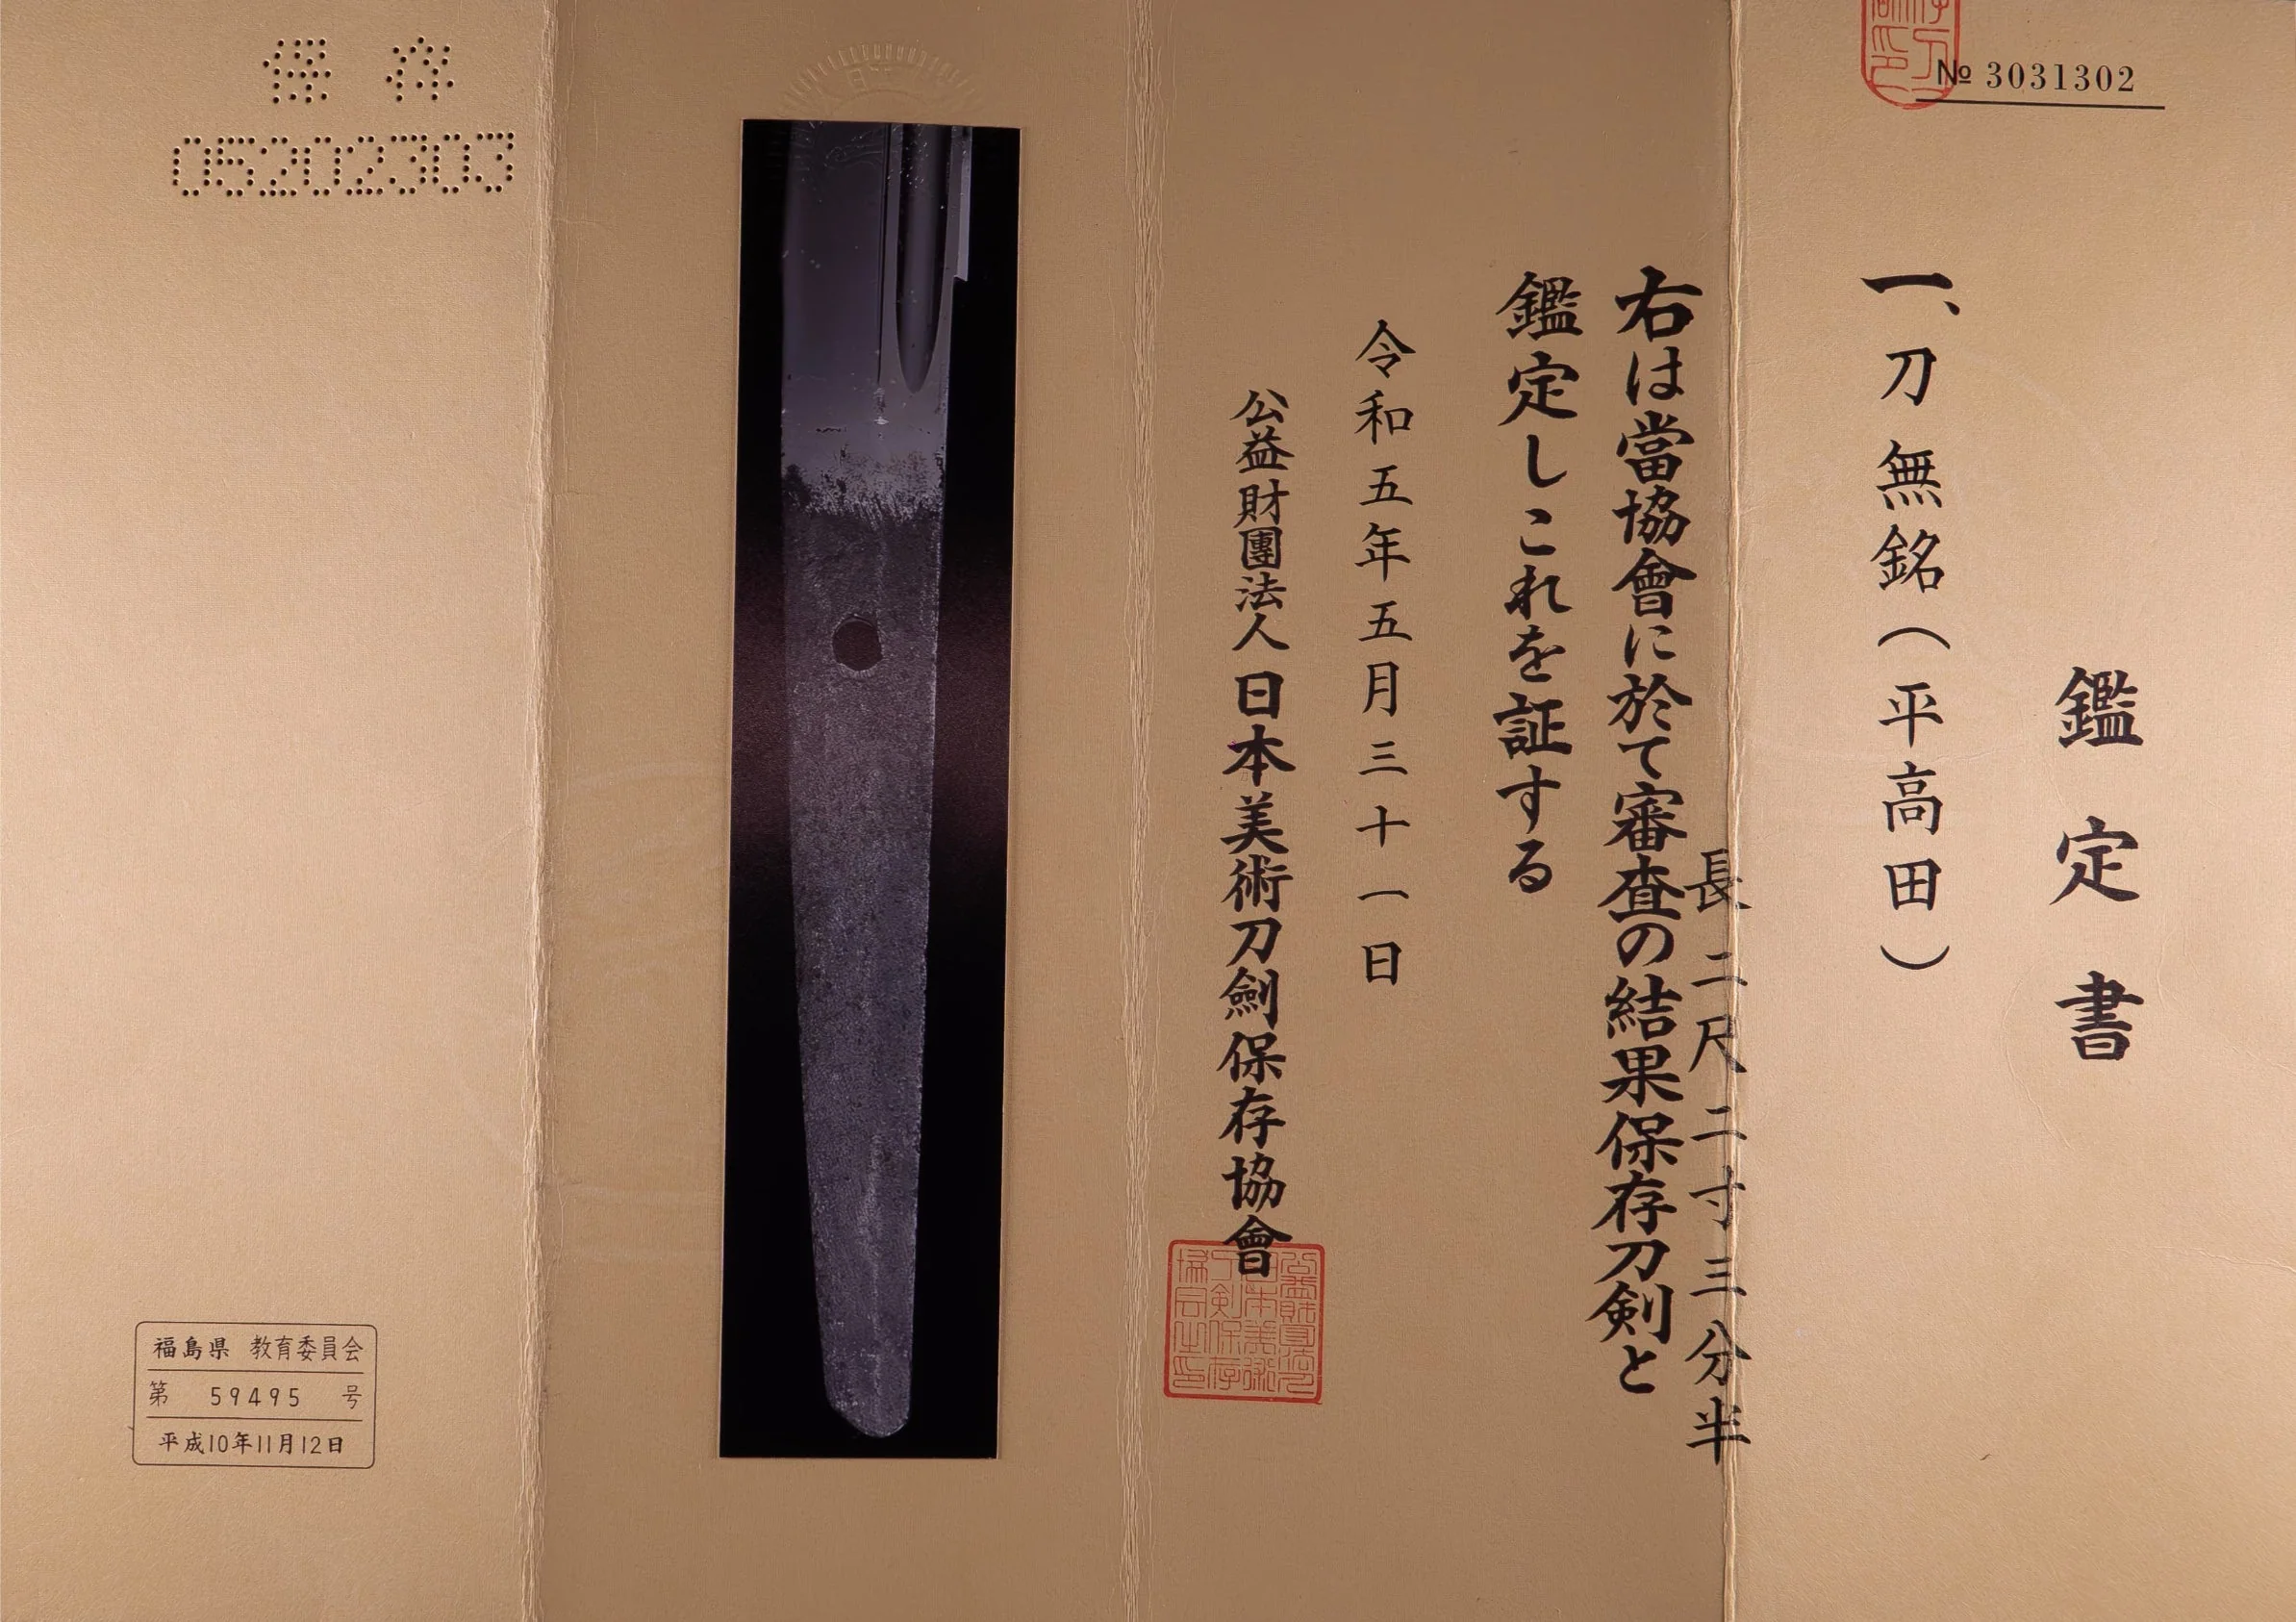 № 3031302
鑑定書
一、刀 無銘(平高田)
長 二尺二寸三分半
右は當協會に於て審査の結果保存刀剣と
鑑定しこれを証する
令和五年五月三十一日
公益財團法人 日本美術刀劍保存協會
保存
05202303
福島県 教育委員会
第 59495 号
平成10年11月12日